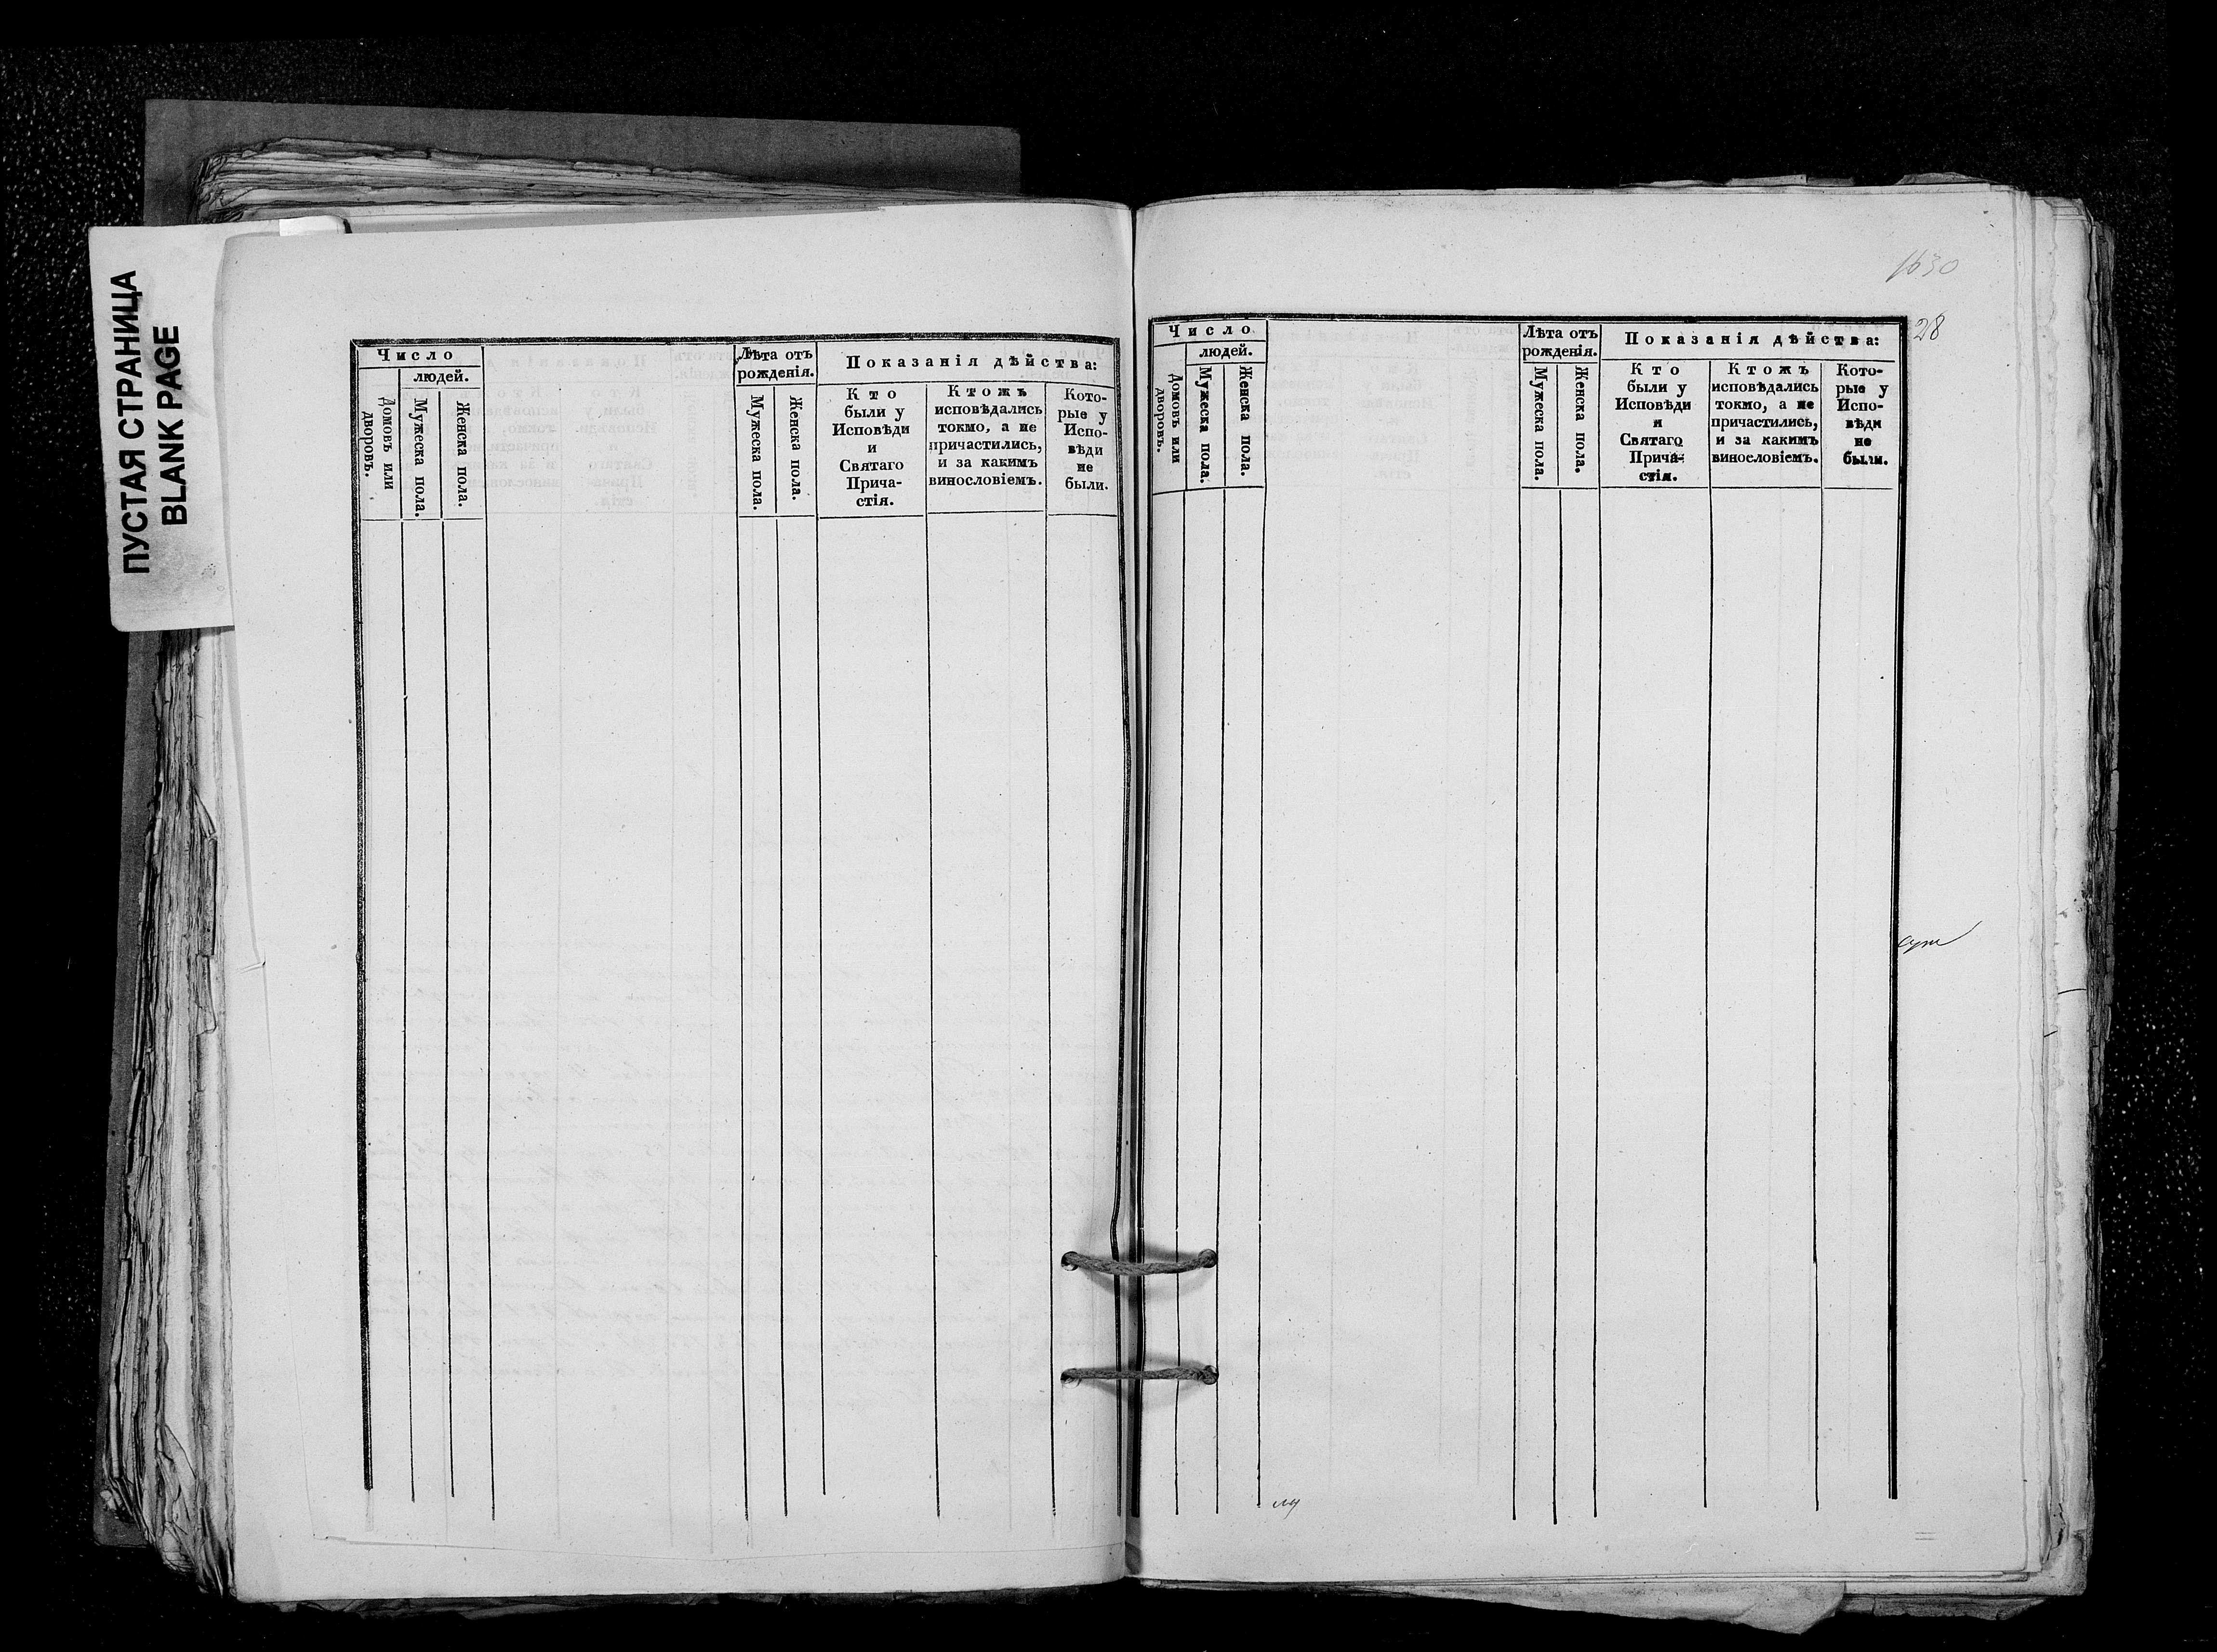 ПУСТАЯ СТРАНИЦА
BLANK PAGE
Число
людей.
Домовъ или
дворовъ.
Мужеска пола.
Женска пола.
Лѣта отъ
рожденія.
Мужеска пола.
Женска пола.
Показанія дѣйства:
Кто
были у
Исповѣди
и
Святаго
Прича-
стія.
Ктожъ
исповѣдались
токмо, а не
причастились,
и за какимъ
винословіемъ.
Кото-
рые у
Испо-
вѣди
не
были.
1630
28
Число
людей.
Домовъ или
дворовъ.
Мужеска пола.
Женска пола.
Лѣта отъ
рожденія.
Мужеска пола.
Женска пола.
Показанія дѣйства:
Кто
были у
Исповѣди
и
Святаго
Прича-
стія.
Ктожъ
исповѣдались
токмо, а не
причастились,
и за какимъ
винословіемъ.
Кото-
рые у
Испо-
вѣди
не
были.